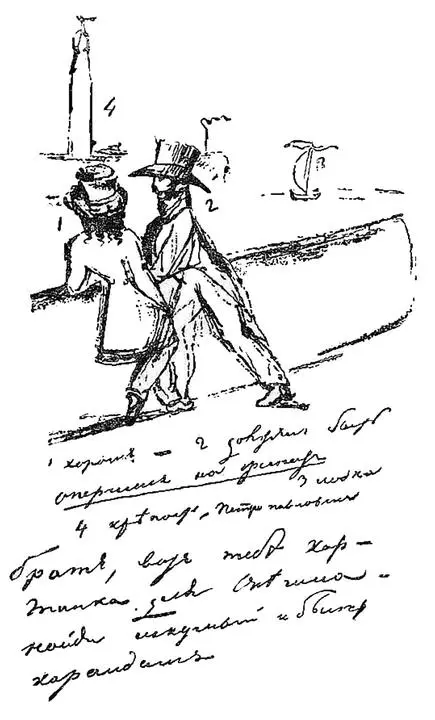 4
3
2
1
1 хорошъ — 2 долженъ быть
опершися на гранитъ
3 лодка
4 крѣпость, Петропавловская
братъ, вотъ тебѣ кар-
тинка для Онѣгина -
найди искусный и быстрый
карандашъ